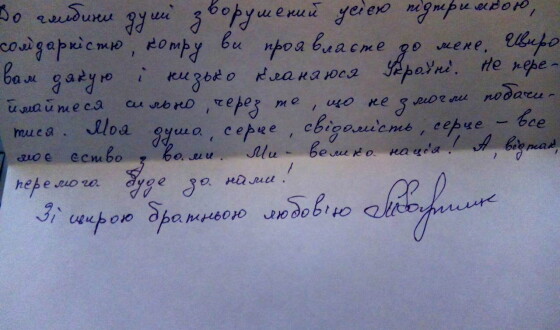 До глибини душі зворушений усією підтримкою,
солідарністю, котру ви проявляєте до мене. Щиро
вам дякую і низько кланяюся Україні. Не пере-
ймайтеся сильно, через те, що не змогли побачи-
тися. Моя душа, серце, свідомість, серце – все
моє єство з вами. Ми – велика нація! А, відтак,
перемога буде за нами!
Зі щирою братньою любов'ю